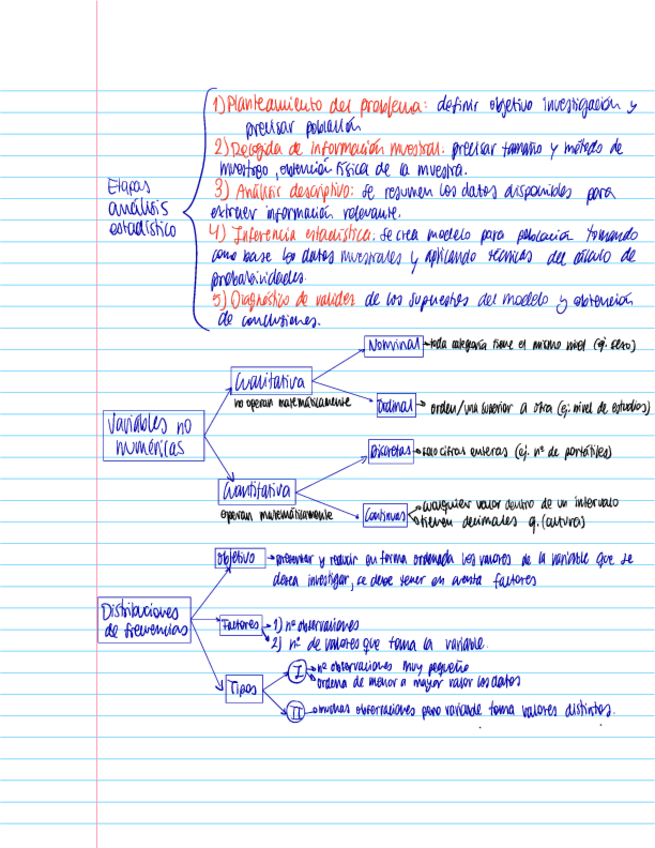 1) Planteamiento del problema: definir objetivo investigación y
precisar población
2) Recogida de información muestral: precisar tamaño y método de
muestreo, obtención física de la muestra.
Etapas
análisis
estadístico
3) Análisis descriptivo: se resumen los datos disponibles para
extraer información relevante.
4) Inferencia estadística: se crea modelo para población tomando
como base los datos muestrales y aplicando técnicas del cálculo de
probabilidades.
5) Diagnóstico de validez de los supuestos del modelo y obtención
de conclusiones.
Nominal
toda categoría tiene el mismo nivel (ej. sexo)
Cualitativa
no operan matemáticamente
Ordinal
orden/una superior a otra (ej: nivel de estudios)
Variables no
numéricas
Discretas
solo cifras enteras (ej. nº de portátiles)
Cuantitativa
operan matemáticamente
Continuas
cualquier valor dentro de un intervalo
tienen decimales ej. (altura)
Objetivo
presentar y reducir en forma ordenada los valores de la variable que se
desea investigar, se debe tener en cuenta factores
Distribuciones
de frecuencias
Factores
1) nº observaciones
2) nº de valores que toma la variable.
Tipos
I
nº observaciones muy pequeño
ordena de menor a mayor valor los datos
II
muchas observaciones pero variable toma valores distintos.